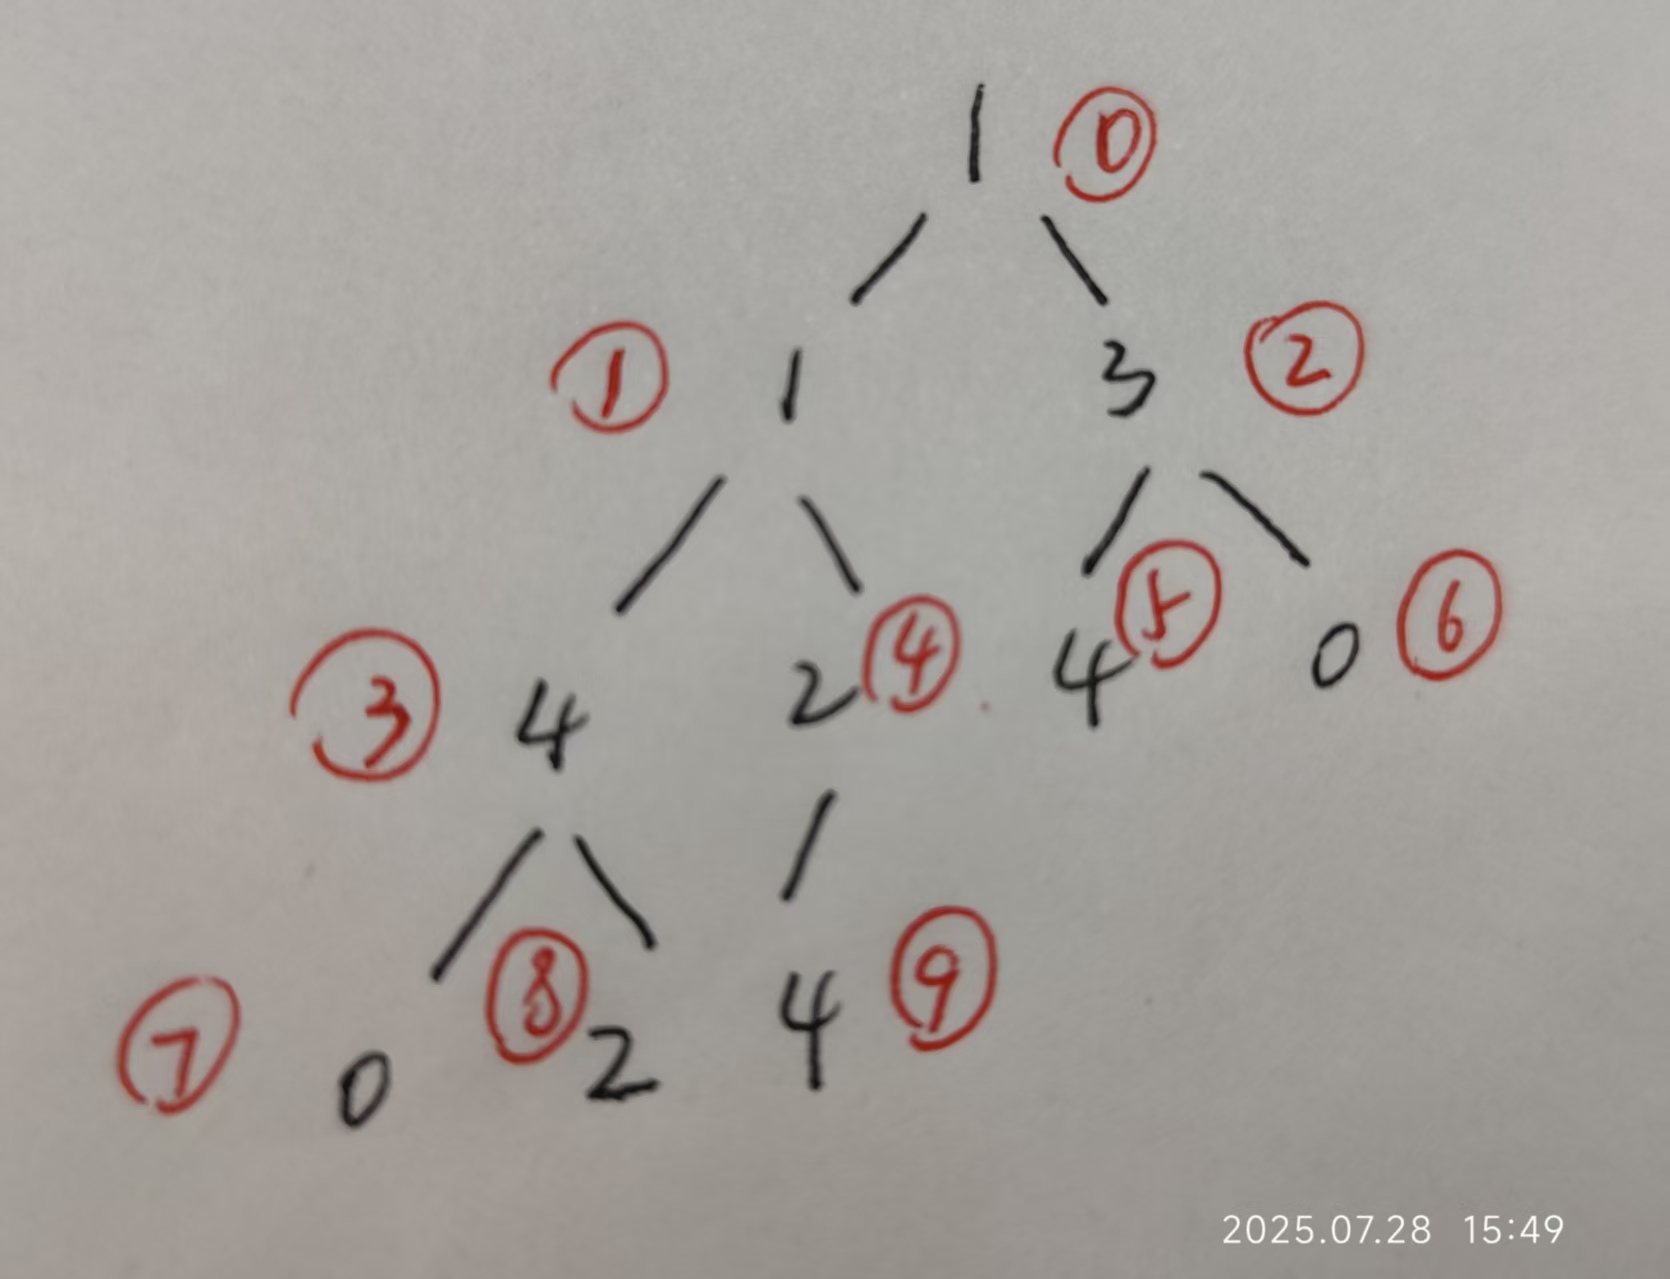 1 ⓪
① 1 3 ②
③ 4 2 ④ 4 ⑤ 0 ⑥
⑦ 0 ⑧ 2 4 ⑨
2025.07.28 15:49